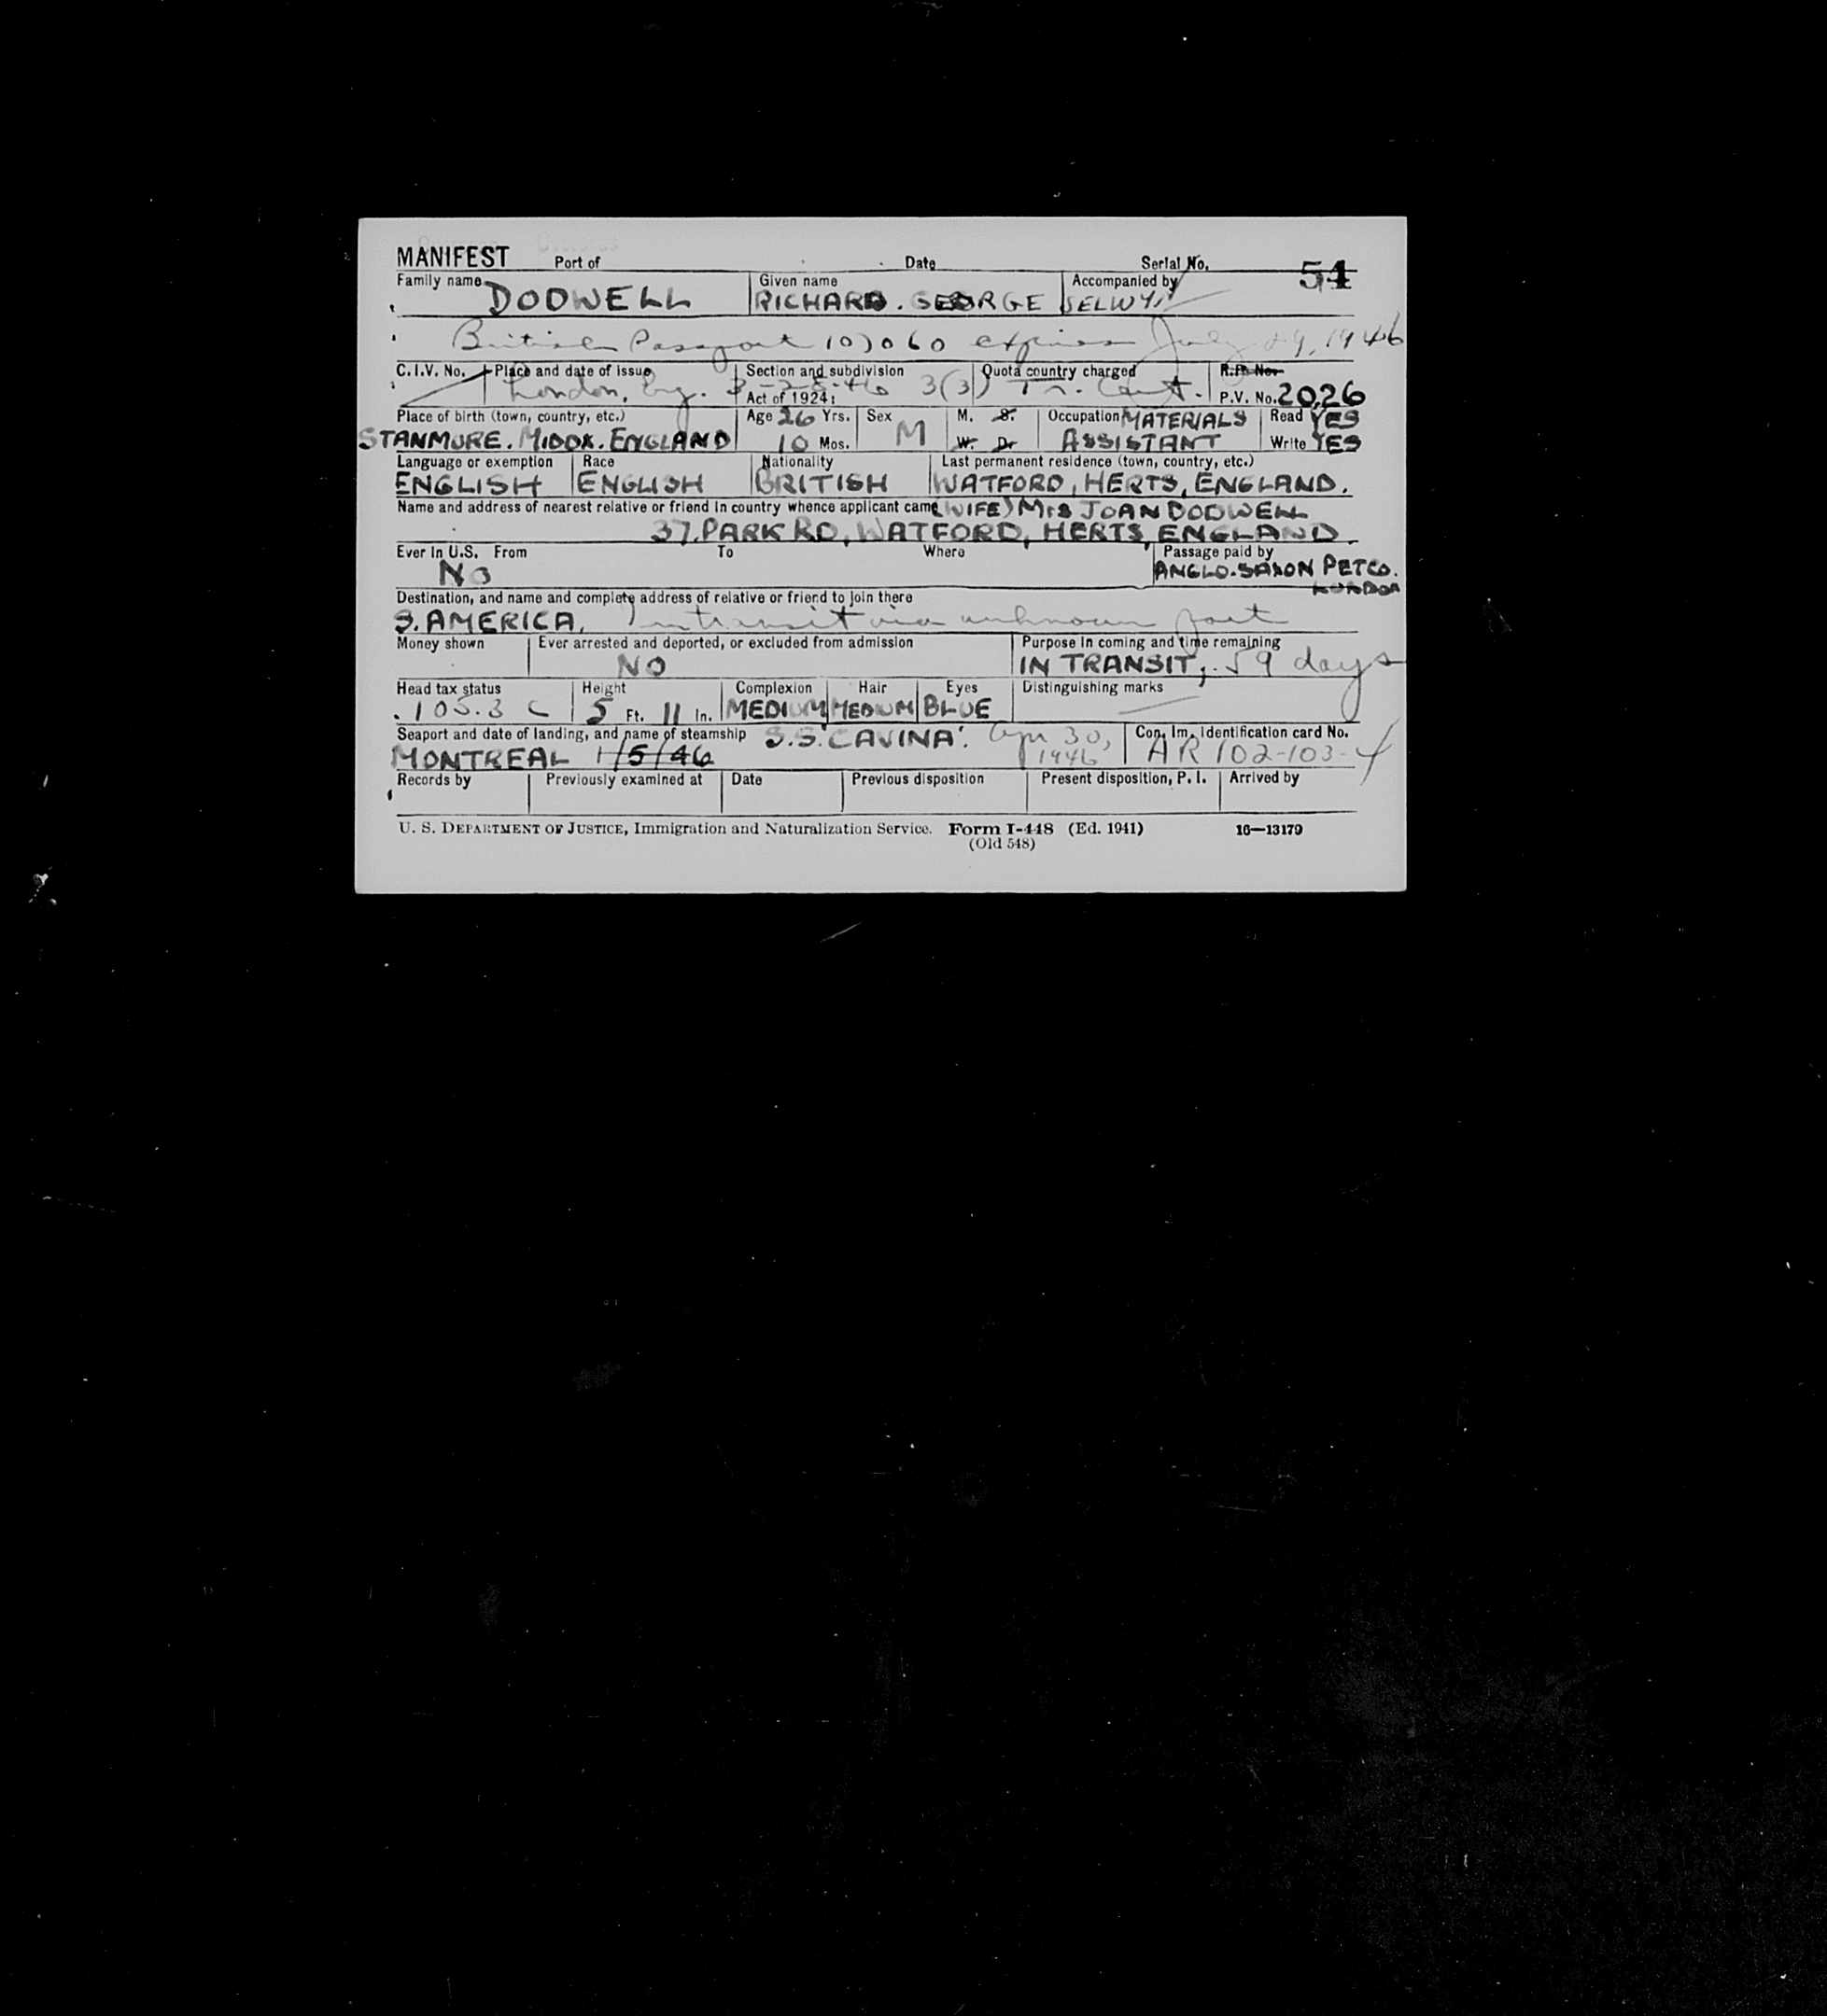 MANIFEST Port of Date Serial No. 54
Family name DODWELL Given name RICHARD. GEORGE Accompanied by SELWYN
British Passport 107060 expires July 29, 1946
C.I.V. No. Place and date of issue London, Eng. 3-28-46 Section and subdivision Act of 1924: 3(3) Quota country charged R.P. No. P.V. No. 2026
Place of birth (town, country, etc.) STANMORE. MIDDX. ENGLAND Age 26 Yrs. 10 Mos. Sex M M. S. W. D. Occupation MATERIALS ASSISTANT Read YES Write YES
Language or exemption ENGLISH Race ENGLISH Nationality BRITISH Last permanent residence (town, country, etc.) WATFORD, HERTS, ENGLAND.
Name and address of nearest relative or friend in country whence applicant came (WIFE) Mrs JOAN DODWELL
37, PARK RD, WATFORD, HERTS, ENGLAND.
Ever in U.S. From To Where No Passage paid by ANGLO-SAXON PET CO. LONDON
Destination, and name and complete address of relative or friend to join there
S. AMERICA, In transit via unknown port
Money shown Ever arrested and deported, or excluded from admission NO Purpose in coming and time remaining IN TRANSIT, 59 days
Head tax status 105.3 C Height 5 Ft. 11 In. Complexion MEDIUM Hair MEDIUM Eyes BLUE Distinguishing marks
Seaport and date of landing, and name of steamship S.S. 'CAVINA'. Apr 30, 1946 MONTREAL 1/5/46 Con. Im. Identification card No. AR 102-103-4
Records by Previously examined at Date Previous disposition Present disposition, P. I. Arrived by
U. S. DEPARTMENT OF JUSTICE, Immigration and Naturalization Service. Form I-448 (Ed. 1941) 16—13179
(Old 548)